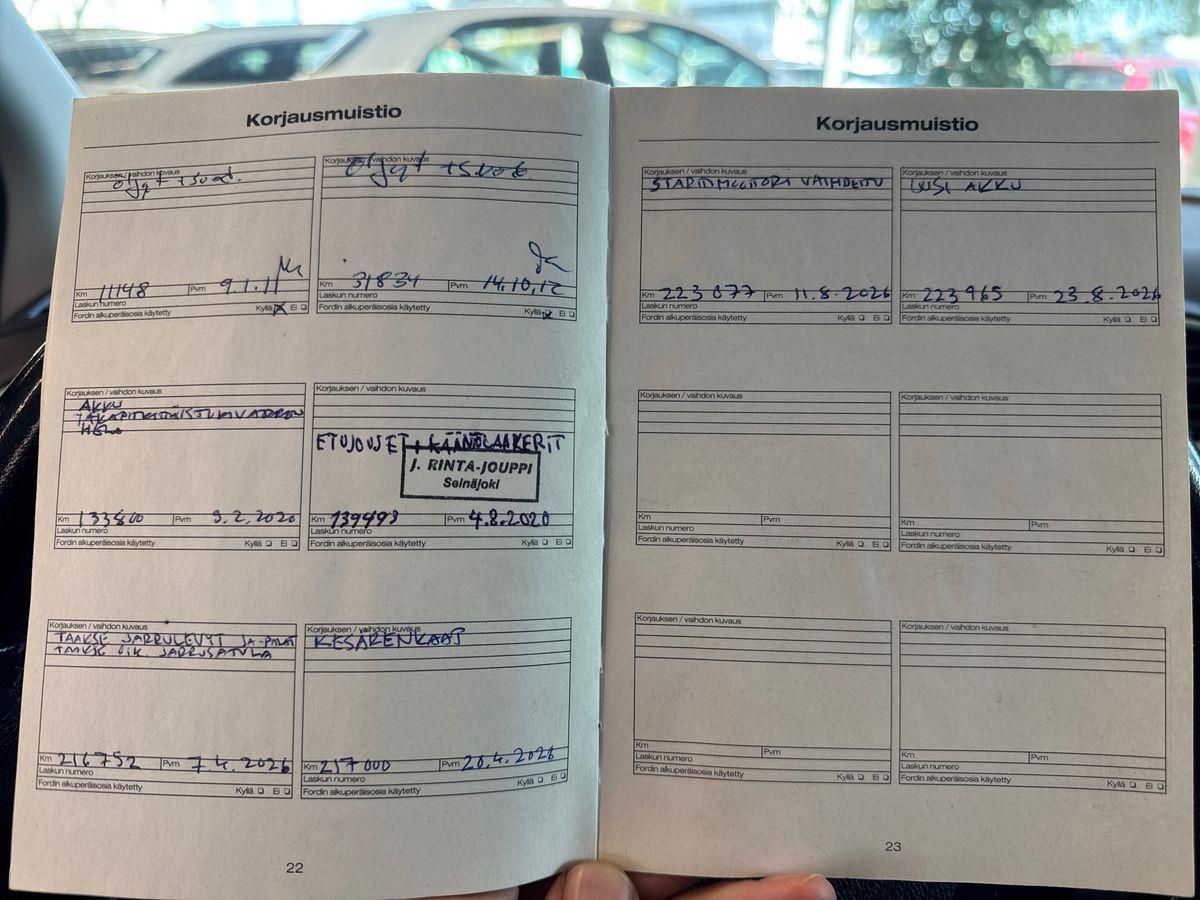 Korjausmuistio
Korjauksen / vaihdon kuvaus
öljyt + suod.
Km 11148 Pvm 9.1.11
Laskun numero
Fordin alkuperäisosia käytetty Kyllä Ei
Korjauksen / vaihdon kuvaus
öljyt + suod.
Km 31834 Pvm 14.10.12
Laskun numero
Fordin alkuperäisosia käytetty Kyllä Ei
Korjauksen / vaihdon kuvaus
AKKU
Km 133800 Pvm 9.2.2020
Laskun numero
Fordin alkuperäisosia käytetty Kyllä Ei
Korjauksen / vaihdon kuvaus
ETUJOUSET + KÄÄNTÖLAAKERIT
J. RINTA-JOUPPI
Seinäjoki
Km 139493 Pvm 4.8.2020
Laskun numero
Fordin alkuperäisosia käytetty Kyllä Ei
Korjauksen / vaihdon kuvaus
TAAKSE JARRULEVYT JA-PALAT
TAAKSE OIK. JARRUSATULA
Km 216752 Pvm 7.4.2026
Laskun numero
Fordin alkuperäisosia käytetty Kyllä Ei
Korjauksen / vaihdon kuvaus
KESÄRENKAAT
Km 217000 Pvm 20.4.2026
Laskun numero
Fordin alkuperäisosia käytetty Kyllä Ei
22
Korjausmuistio
Korjauksen / vaihdon kuvaus
STARTTIMOOTTORI VAIHDETTU
Km 223077 Pvm 11.8.2026
Laskun numero
Fordin alkuperäisosia käytetty Kyllä Ei
Korjauksen / vaihdon kuvaus
UUSI AKKU
Km 223965 Pvm 23.8.2026
Laskun numero
Fordin alkuperäisosia käytetty Kyllä Ei
Korjauksen / vaihdon kuvaus
Km Pvm
Laskun numero
Fordin alkuperäisosia käytetty Kyllä Ei
Korjauksen / vaihdon kuvaus
Km Pvm
Laskun numero
Fordin alkuperäisosia käytetty Kyllä Ei
Korjauksen / vaihdon kuvaus
Km Pvm
Laskun numero
Fordin alkuperäisosia käytetty Kyllä Ei
Korjauksen / vaihdon kuvaus
Km Pvm
Laskun numero
Fordin alkuperäisosia käytetty Kyllä Ei
23